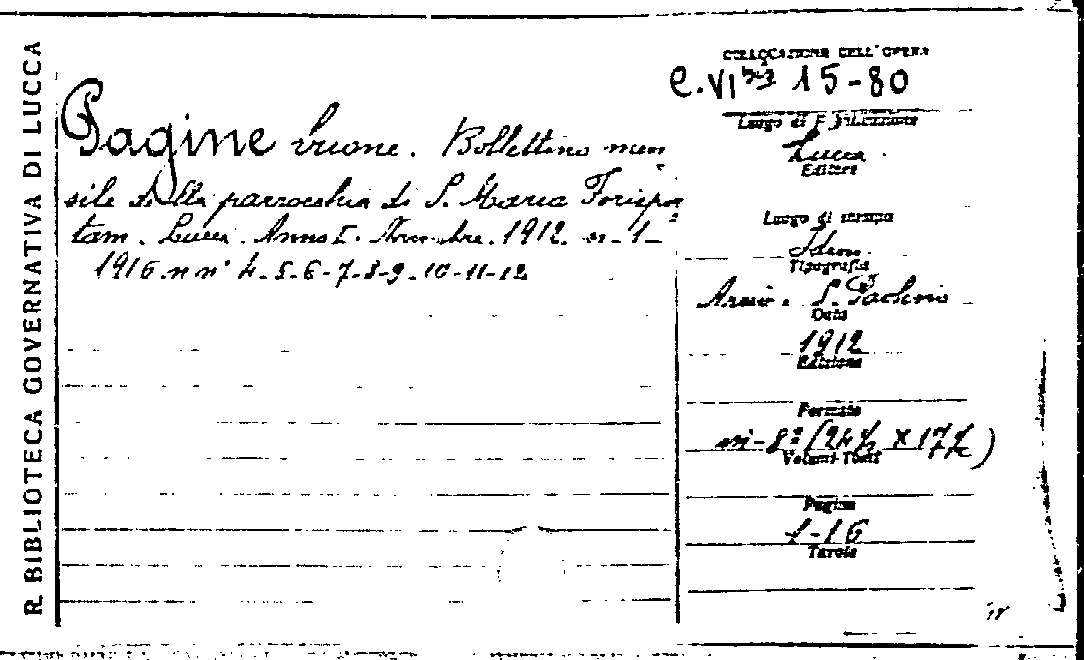 R. BIBLIOTECA GOVERNATIVA DI LUCCA
Pagine buone. Bollettino men
sile della parrocchia di S. Maria Forispor
tam. Lucca. Anno I. Novembre. 1912. n. 1-
1916. n n° 4-5-6-7-8-9-10-11-12
COLLOCAZIONE DELL'OPERA
C.VI 15-80
Luogo di
Lucca.
Editore
Luogo di stampa
Idem.
Tipografia
S. Paolino
Data
1912
Edizione
Formato
in-8° (24 X 17
Volumi-Tomi
Pagine
1-16
Tavole